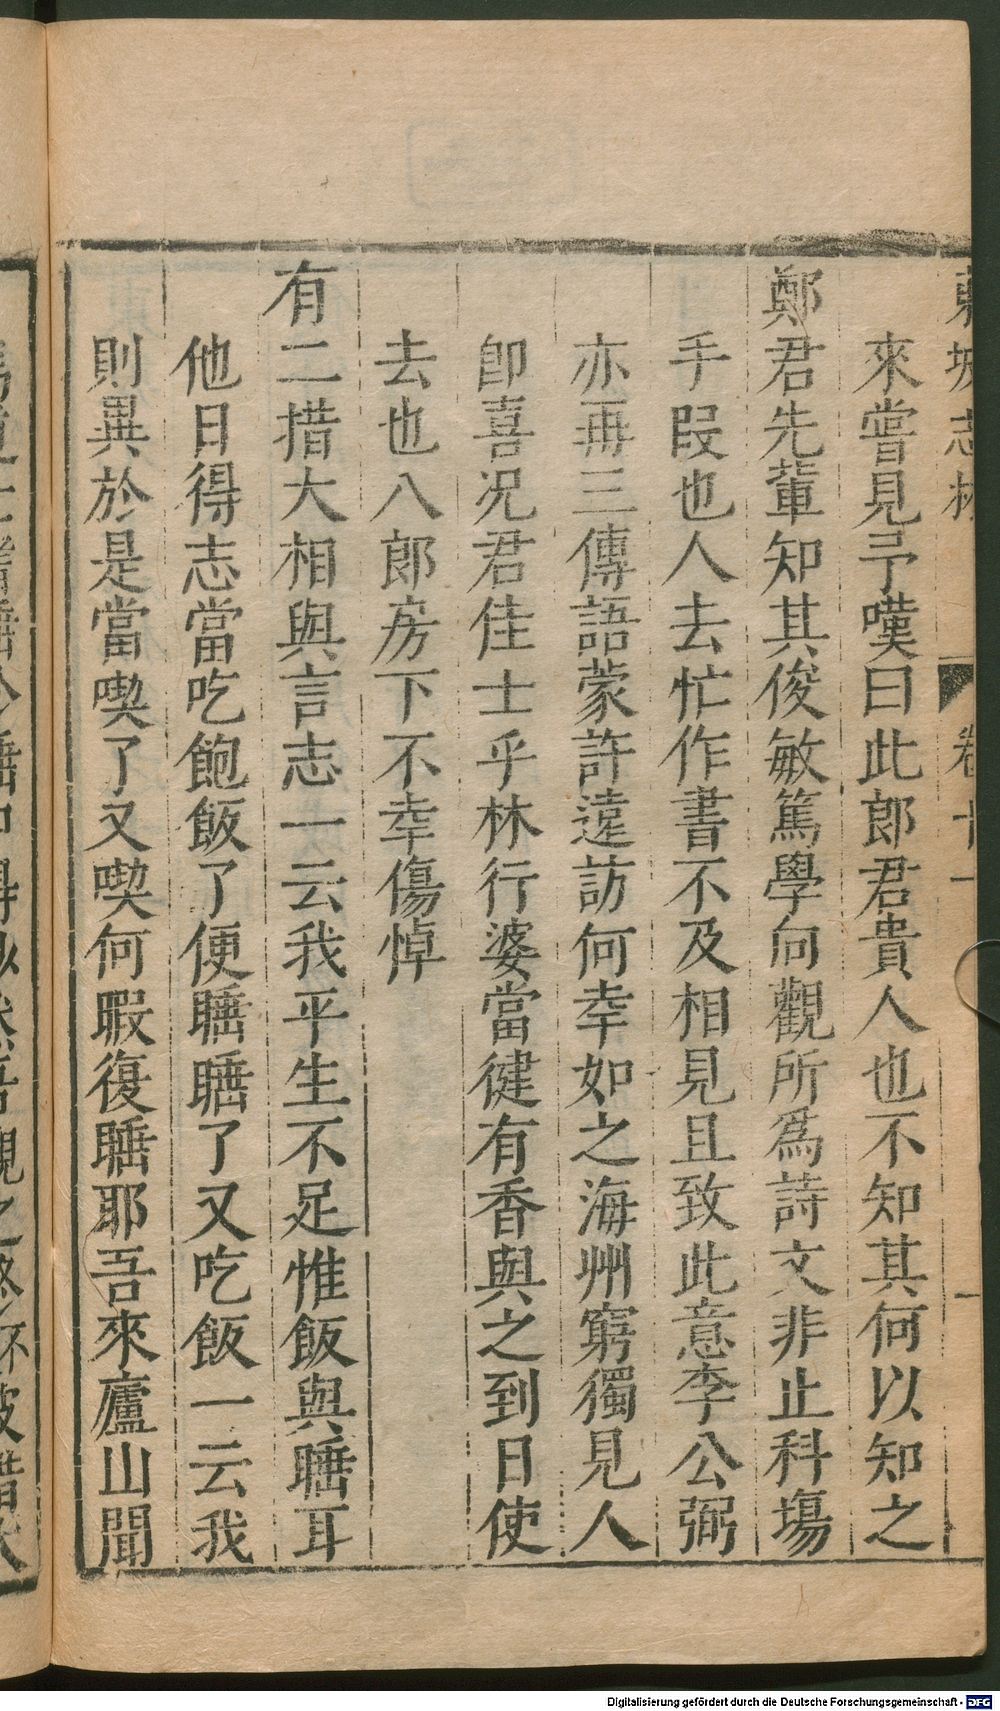 東坡志林
卷十一
來嘗見予嘆曰此郎君貴人也不知其何以知之
鄭君先輩知其俊敏篤學向觀所爲詩文非止科塲
手叚也人去忙作書不及相見且致此意李公弼
亦再三傳語蒙許遠訪何幸如之海州窮獨見人
卽喜况君佳士乎林行婆當徤有香與之到日使
去也八郎房下不幸傷悼
有二措大相與言志一云我平生不足惟飯與睡耳
他日得志當吃飽飯了便睡睡了又吃飯一云我
則異於是當喫了又喫何暇復睡耶吾來廬山聞
Digitalisierung gefördert durch die Deutsche Forschungsgemeinschaft - DFG